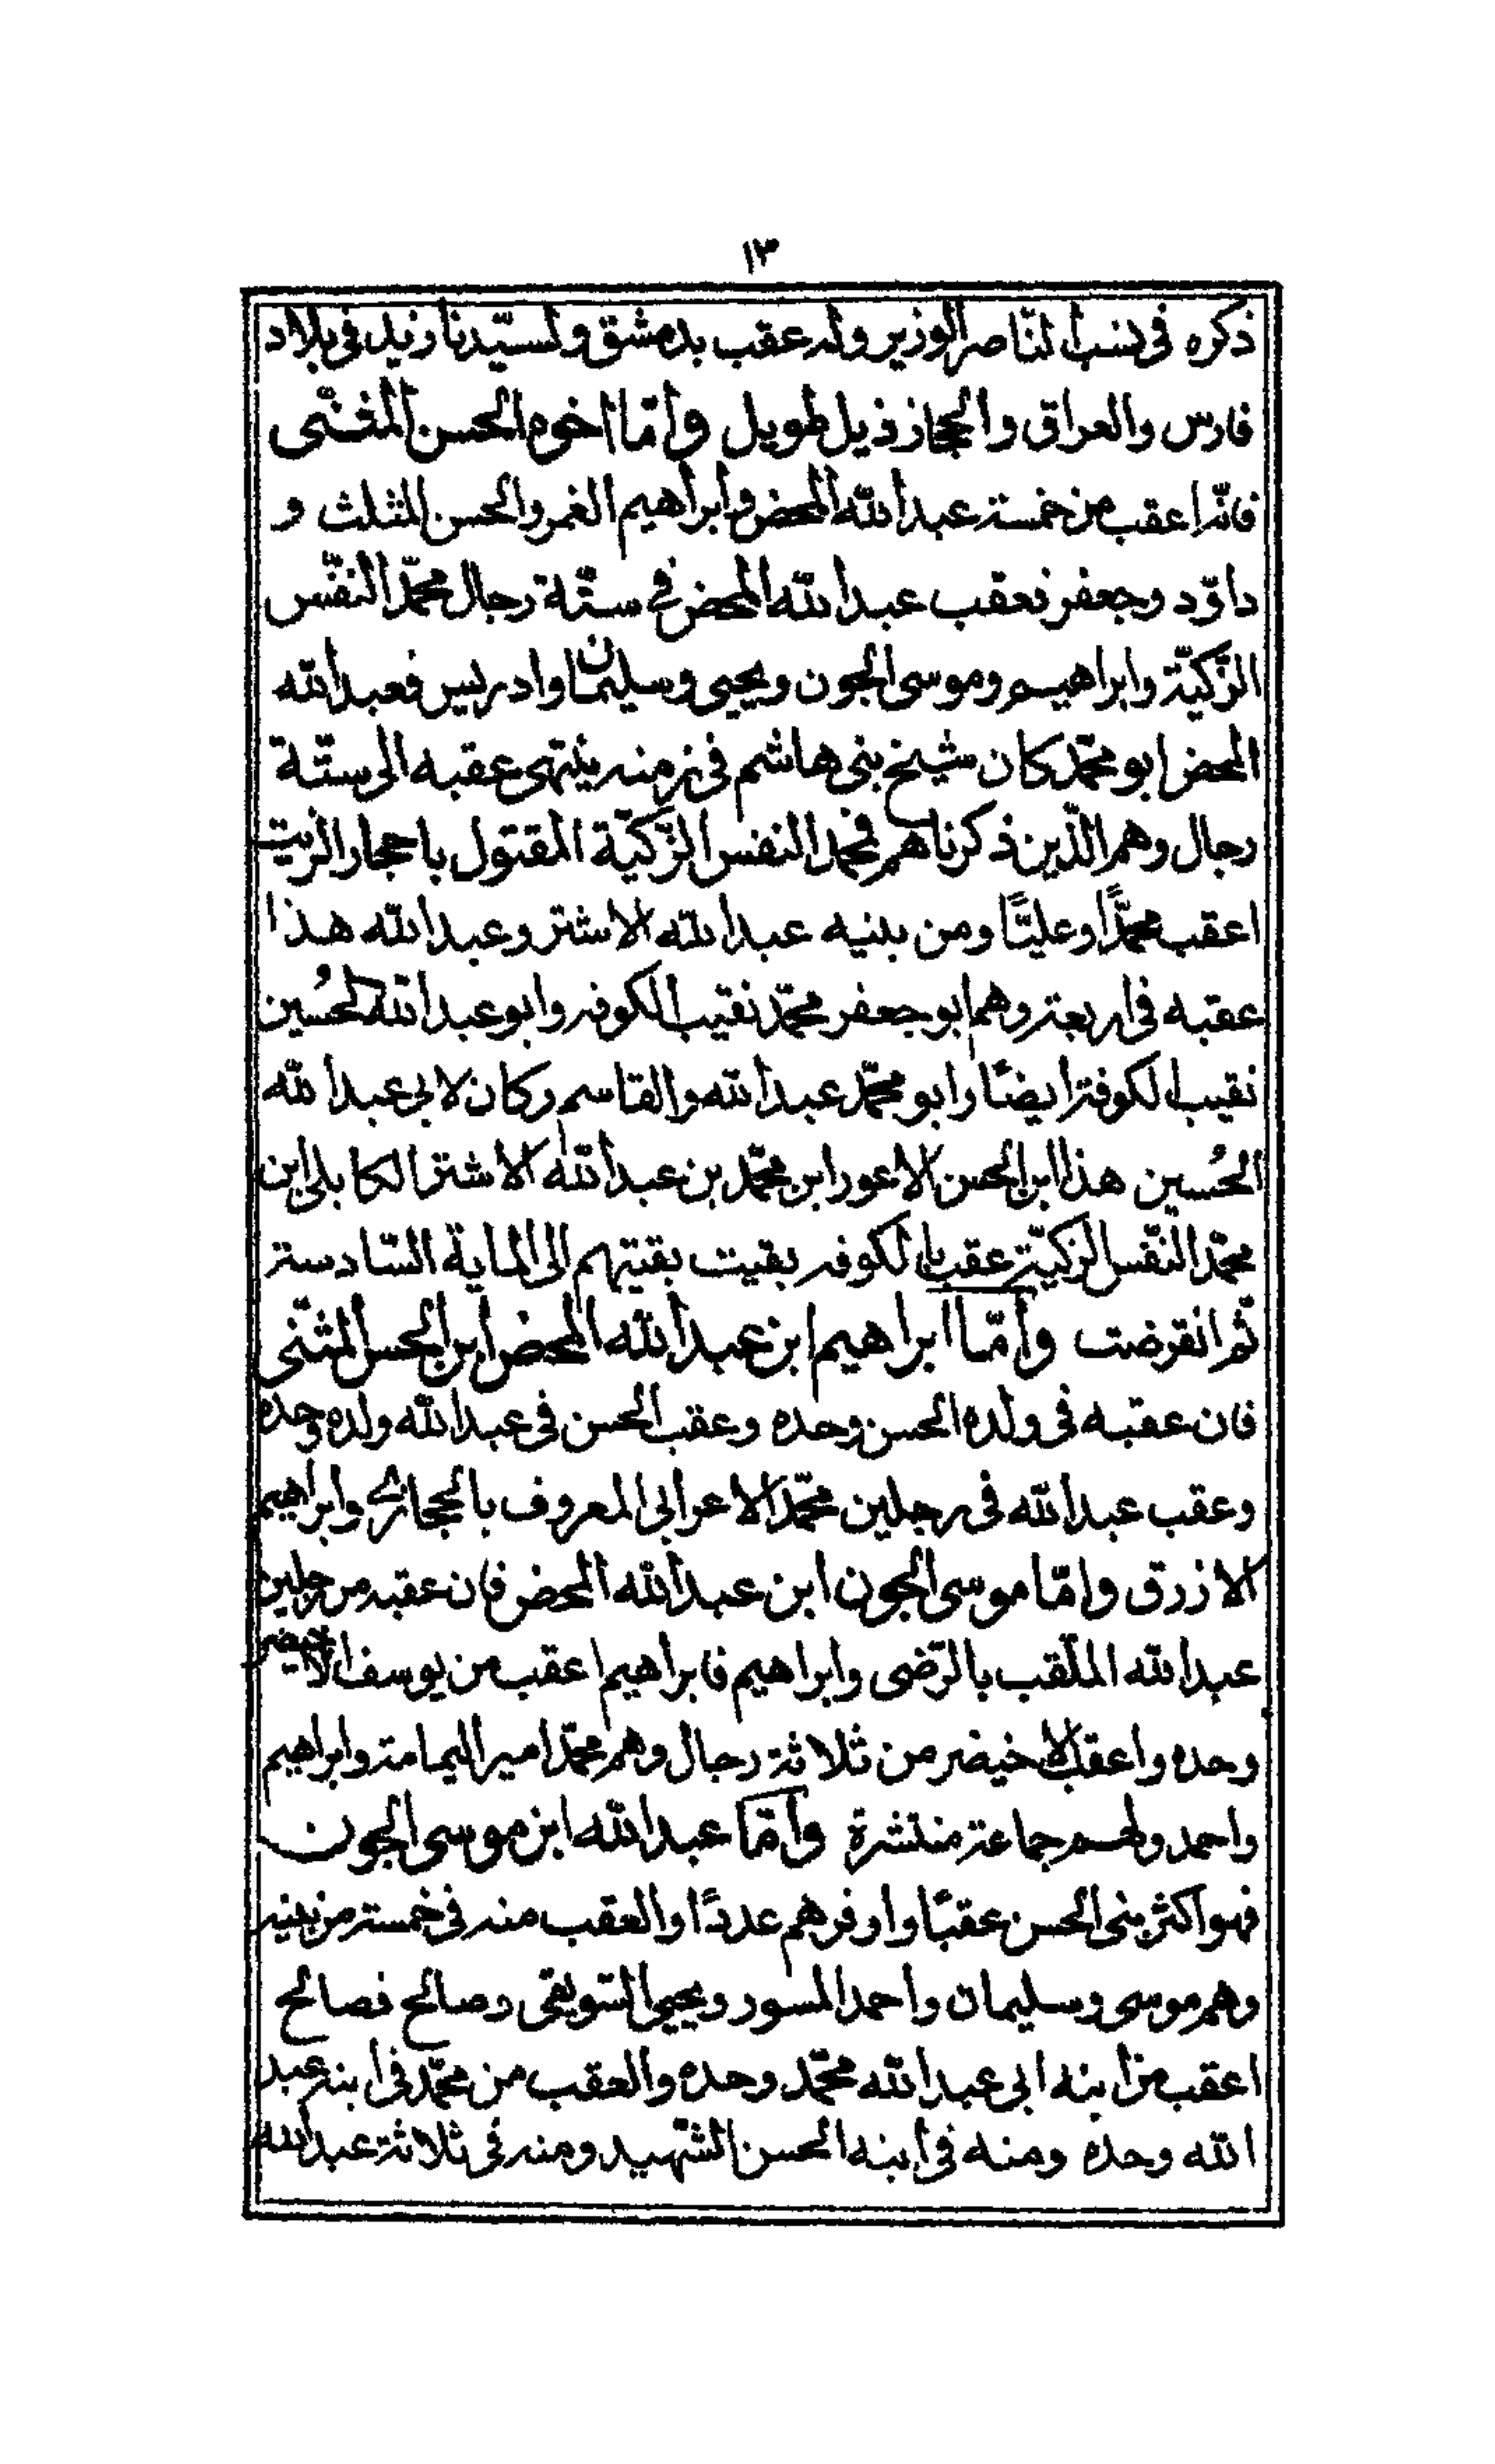 ١٣
ذكره في نسب الناصر الوزير وله عقب بدمشق ولسيّدنا زيد في بلاد
فارس والعراق والحجاز ذيل طويل وامّا اخوه الحسن المثنّى
فانّه اعقب من خمسة عبد الله المحض وابراهيم الغمر والحسن المثلث و
داوّد وجعفر فعقب عبد الله المحض في ستّة رجال محمّد النفّس
الزّكيّة وابراهيم وموسى الجون ويحيى وسليمان وادريس فعبد الله
المحض ابو محمّد كان شيخ بني هاشم في زمنه ينتهى عقبه الى ستّة
رجال وهم الّذين ذكرناهم فمحمد النفس الزّكيّة المقتول باحجار الزيت
اعقب محمّدًا وعليًّا ومن بنيه عبد الله الاشتر وعبد الله هذا
عقبه في اربعة وهم ابو جعفر محمّد نقيب الكوفه وابو عبد الله الحُسين
نقيب الكوفة ايضًا وابو محمّد عبد الله والقاسم وكان لابي عبد الله
الحُسين هذا ابن الحسن الاعور ابن محمّد بن عبد الله الاشتر الكابلي ابن
محمّد النفّس الزكيّة عقب بالكوفه بقيت بقيتهم الى الماية السّادسة
ثم انقرضت وامّا ابراهيم ابن عبد الله المحض ابن الحسن المثنّى
فان عقبه في ولده الحسن وحده وعقب الحسن في عبد الله ولده وحده
وعقب عبد الله في رجلين محمّد الاعرابي المعروف بالحجازي وابراهيم
الازرق وامّا موسى الجون ابن عبد الله المحض فان عقبه من رجلين
عبد الله الملّقب بالرّضى وابراهيم فابراهيم اعقب من يوسف الاخيضر
وحده واعقب الاخيضر من ثلاثة رجال وهم محمّد امير اليمامة وابراهيم
واحمد ولهم جماعة منتشرة وامّا عبد الله ابن موسى الجون
فهو اكثر بني الحسن عقبًا واوفرهم عددًا والعقب منه في خمسة من بنيه
وهم موسى وسليمان واحمد المسور ويحيى السّويقى وصالح فصالح
اعقب من ابنه ابي عبد الله محمّد وحده والعقب من محمّد في ابنه عبد
الله وحده ومنه في ابنه الحسن الشّهيد ومنه في ثلاثة عبد الله